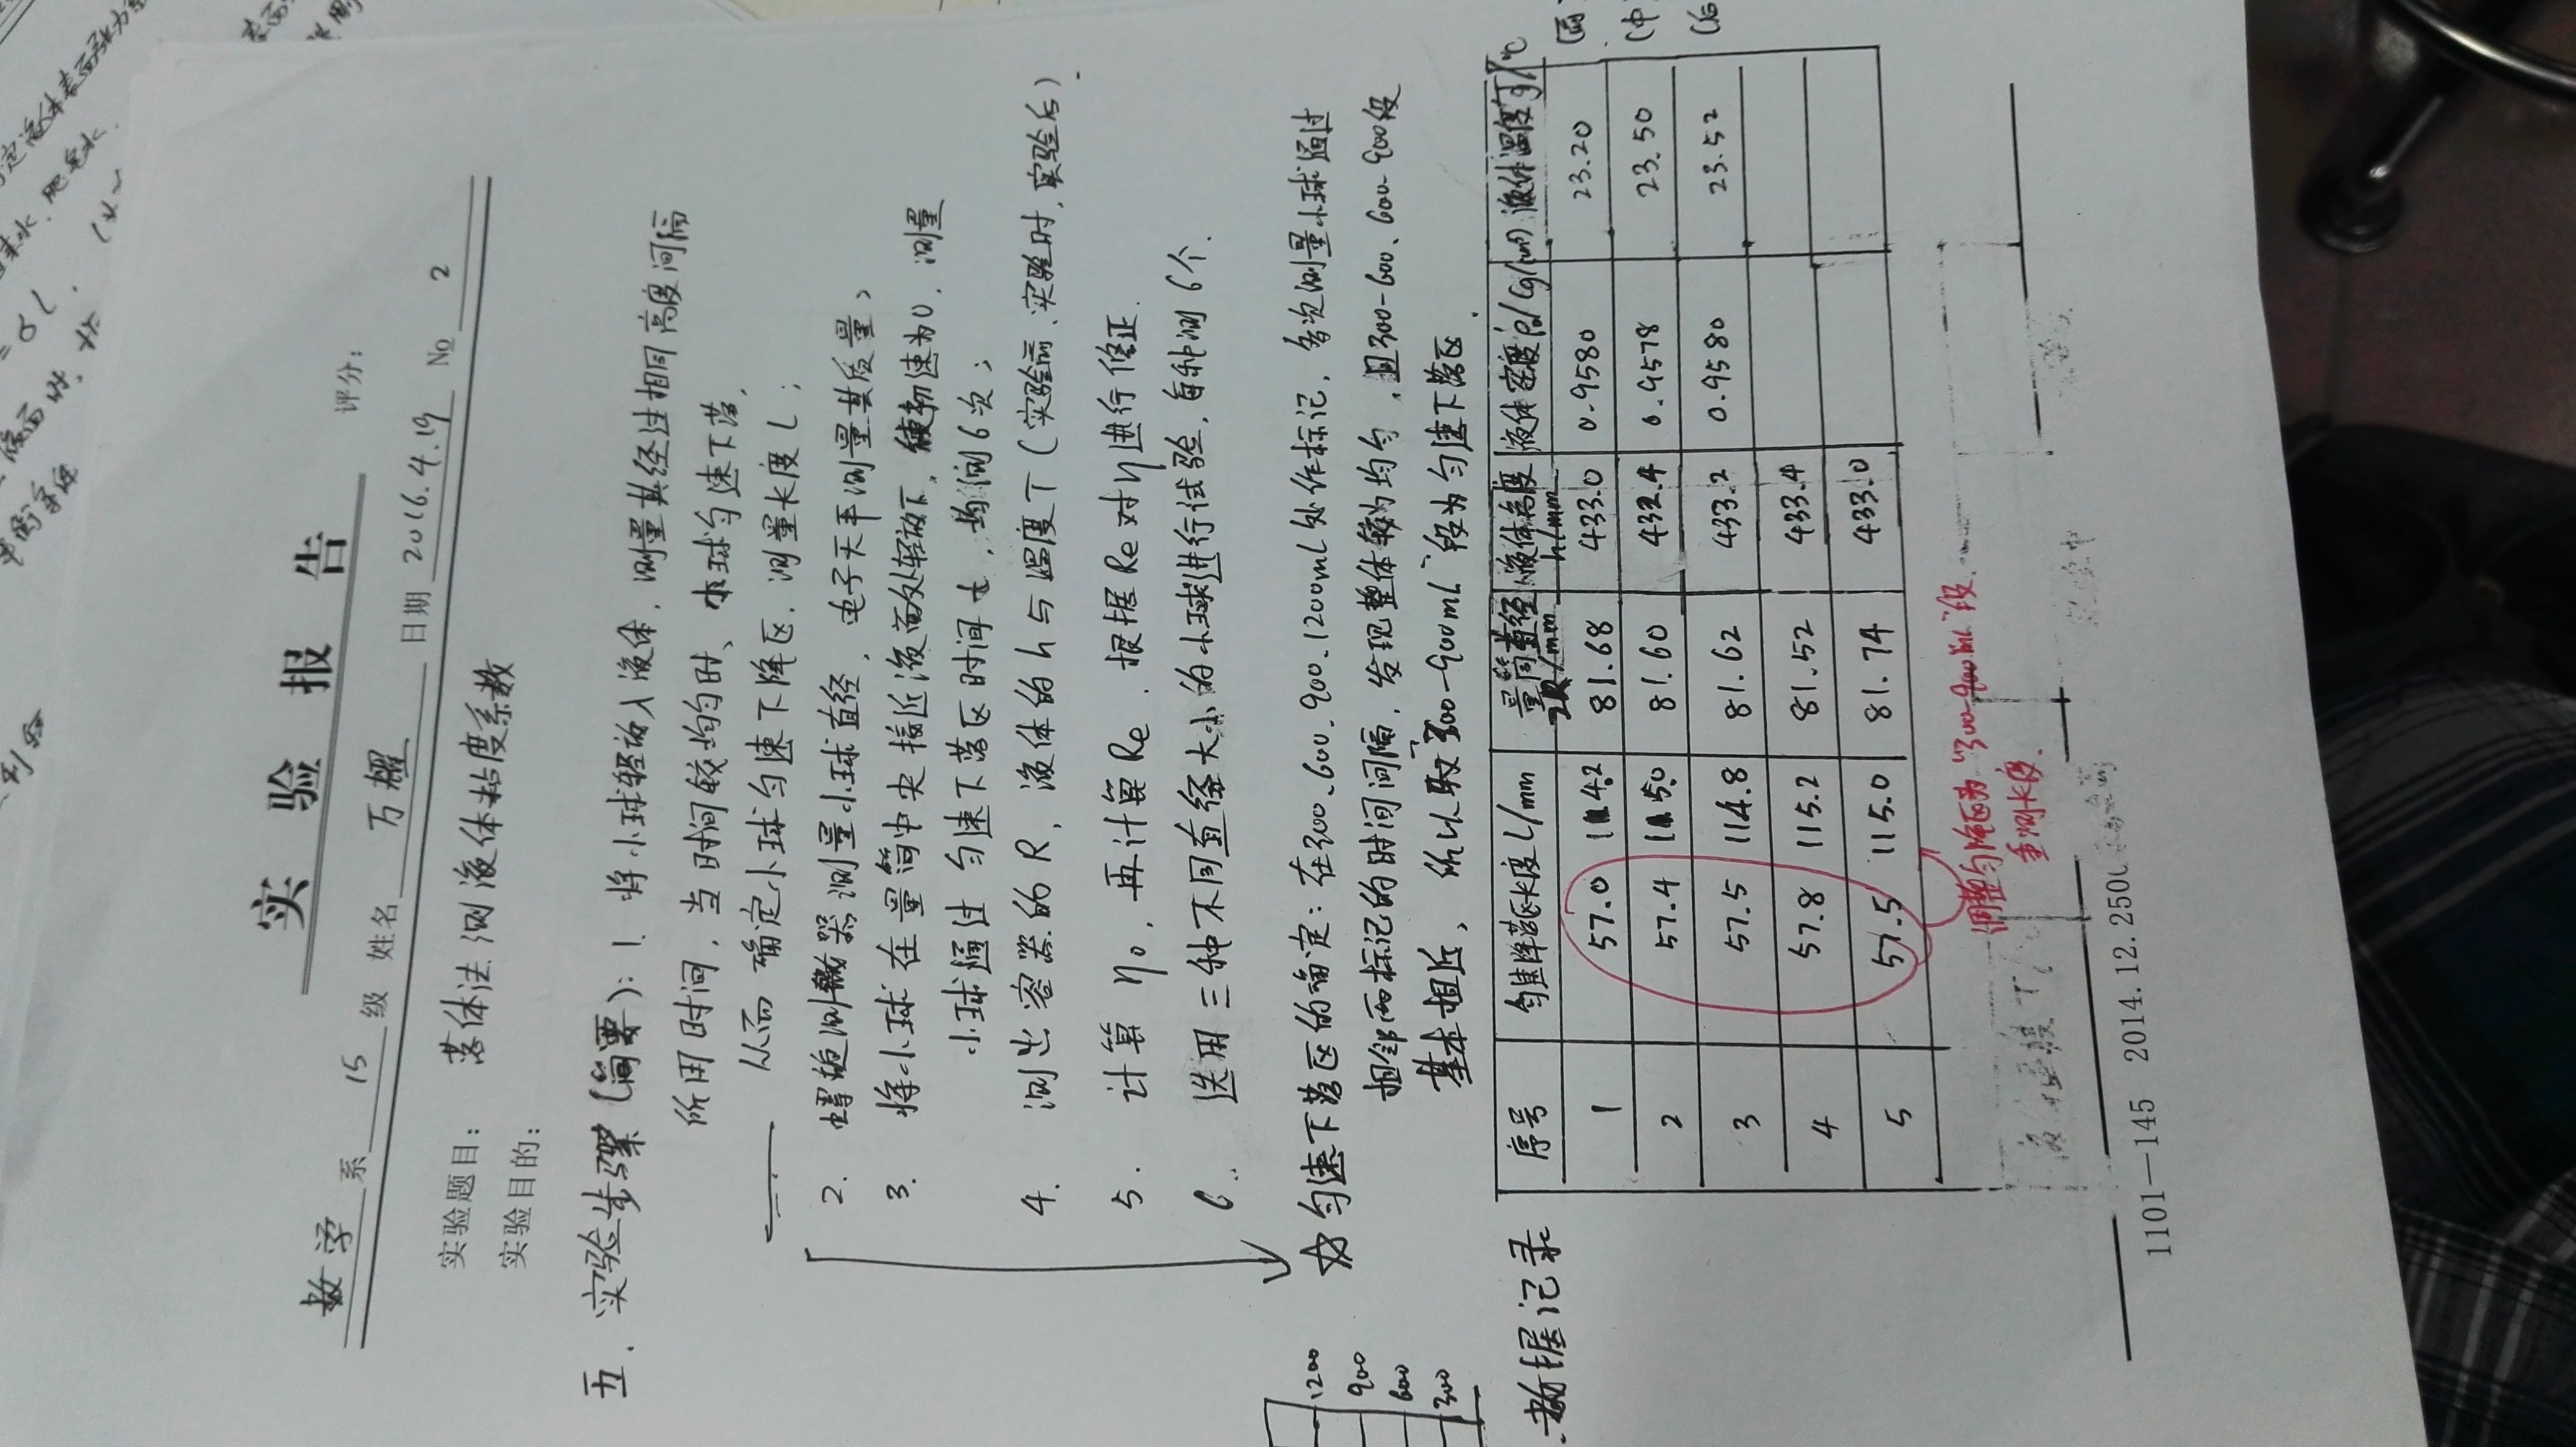 实 验 报 告
评分:
数学 系 15 级 姓名 万 日期 2016.4.19 No 2
实验题目: 落体法测液体粘度系数
实验目的:
五. 实验步骤(简要): 1. 将小球轻放入液体, 测量其经过相同高度间隔
所用时间, 当时间较均匀时、小球匀速下落,
从而确定小球匀速下降区, 测量长度 l;
2. 螺旋测微器测量小球直径, 电子天平测量其质量;
3. 将小球在量筒中央接近液面处轻放下, 使初速为0, 测量
小球通过匀速下落区时间 t, 均测6次;
4. 测出容器的 R, 液体的 h 与温度 T (实验前、实验时, 实验后).
5. 计算 η₀, 再计算 Re, 根据 Re 对 η 进行修正.
6. 选用三种不同直径大小的小球进行试验, 每种测6个.
对匀速下落区的确定: 在300、600、900、1200mL处作标记, 多次测量小球通过
相邻两标记的时间间隔, 发现整体较为均匀, 且300-600、600-900段
基本相近、所以取300-900mL段为匀速下落区.
1200
900
600
300
数据记录
序号 匀速降落区长度 l/mm 量筒直径 2R/mm 液体高度 h/mm 液体密度ρ₀/(g/cm³) 液体温度T/℃
1 57.0 114.2 81.68 433.0 0.9580 23.20
2 57.4 115.0 81.60 432.4 0.9578 23.50 (中
3 57.5 114.8 81.62 433.2 0.9580 23.52 (后
4 57.8 115.2 81.52 433.4
5 57.5 115.0 81.74 433.0
调整匀降区为“300-900mL”段.
重测长度
1101—145 2014.12.250